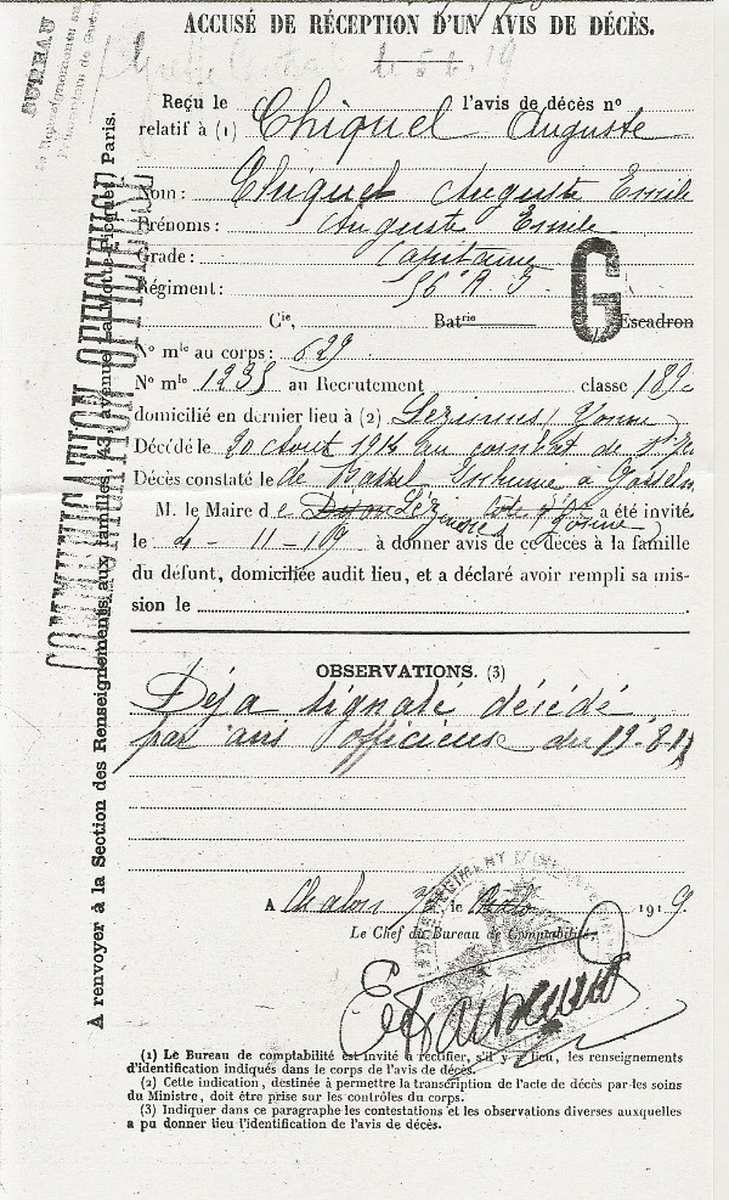 ACCUSÉ DE RÉCEPTION D'UN AVIS DE DÉCÈS.
BUREAU
COMMUNICATION OFFICIEUSE
A renvoyer à la Section des Renseignements aux familles, 43, avenue La Motte-Picquet, Paris.
Reçu le l'avis de décès nº
relatif à (1) Chiquel Auguste
Nom : Chiquel Auguste Emile
Prénoms : Auguste Emile
Grade : Capitaine
Régiment : 56e R. I.
G
Cie, Batrie Escadron
Nº mle au corps : 629
Nº mle 1235 au Recrutement classe 189
domicilié en dernier lieu à (2) Lezinnes (Yonne)
Décédé le 20 Août 1914 au combat de
Décès constaté le de à
M. le Maire de Lézinnes (Yonne) a été invité,
le 4 - 11 - 19 à donner avis de ce décès à la famille
du défunt, domiciliée audit lieu, et a déclaré avoir rempli sa mis-
sion le
OBSERVATIONS. (3)
Déja signalé décédé
par avis officieuse du 19-8-1
A Chalon le 1919.
Le Chef du Bureau de Comptabilité,
(1) Le Bureau de comptabilité est invité à rectifier, s'il y a lieu, les renseignements
d'identification indiqués dans le corps de l'avis de décès.
(2) Cette indication, destinée à permettre la transcription de l'acte de décès par les soins
du Ministre, doit être prise sur les contrôles du corps.
(3) Indiquer dans ce paragraphe les contestations et les observations diverses auxquelles
a pu donner lieu l'identification de l'avis de décès.